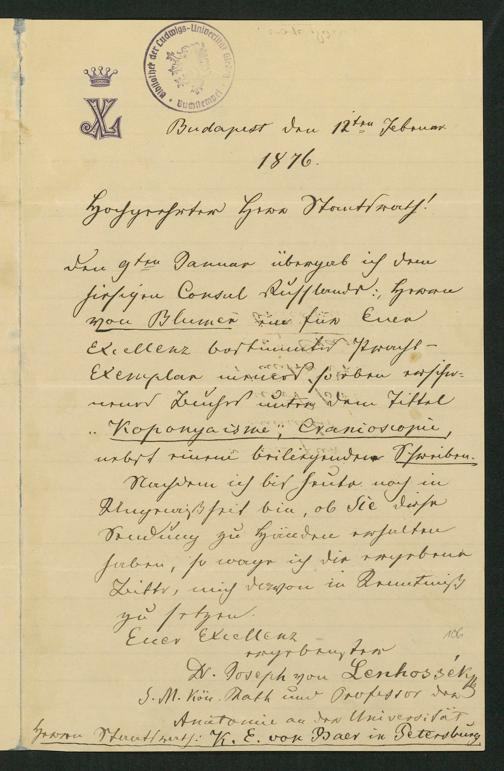 Bibliothek der Ludwigs-Universität Giessen
Buchstempel
XL
Budapest den 12ten Februar
1876.
Hochgeehrter Herr Staatsrath!
Den 9ten Januar übergab ich dem
hiesigen Consul Russlands: Herrn
von Blumer ein für Euer
Excellenz bestimmtes Pracht-
Exemplar meines soeben erschie-
nenen Buches unter dem Tittel
„Koponyaisme, Cranioscopie,
nebst einem beiliegenden Schreiben.
Nachdem ich bis heute noch in
Ungewißheit bin, ob Sie diese
Sendung zu Händen erhalten
haben, so wage ich die ergebene
Bitte, mich davon in Kenntniß
zu setzen.
Euer Excellenz
ergebenster
Dr. Joseph von Lenhossék
Kön. Rath und Professor der
Anatomie an der Universität
Herrn Staatsrath: K. E. von Baer in Petersburg
106